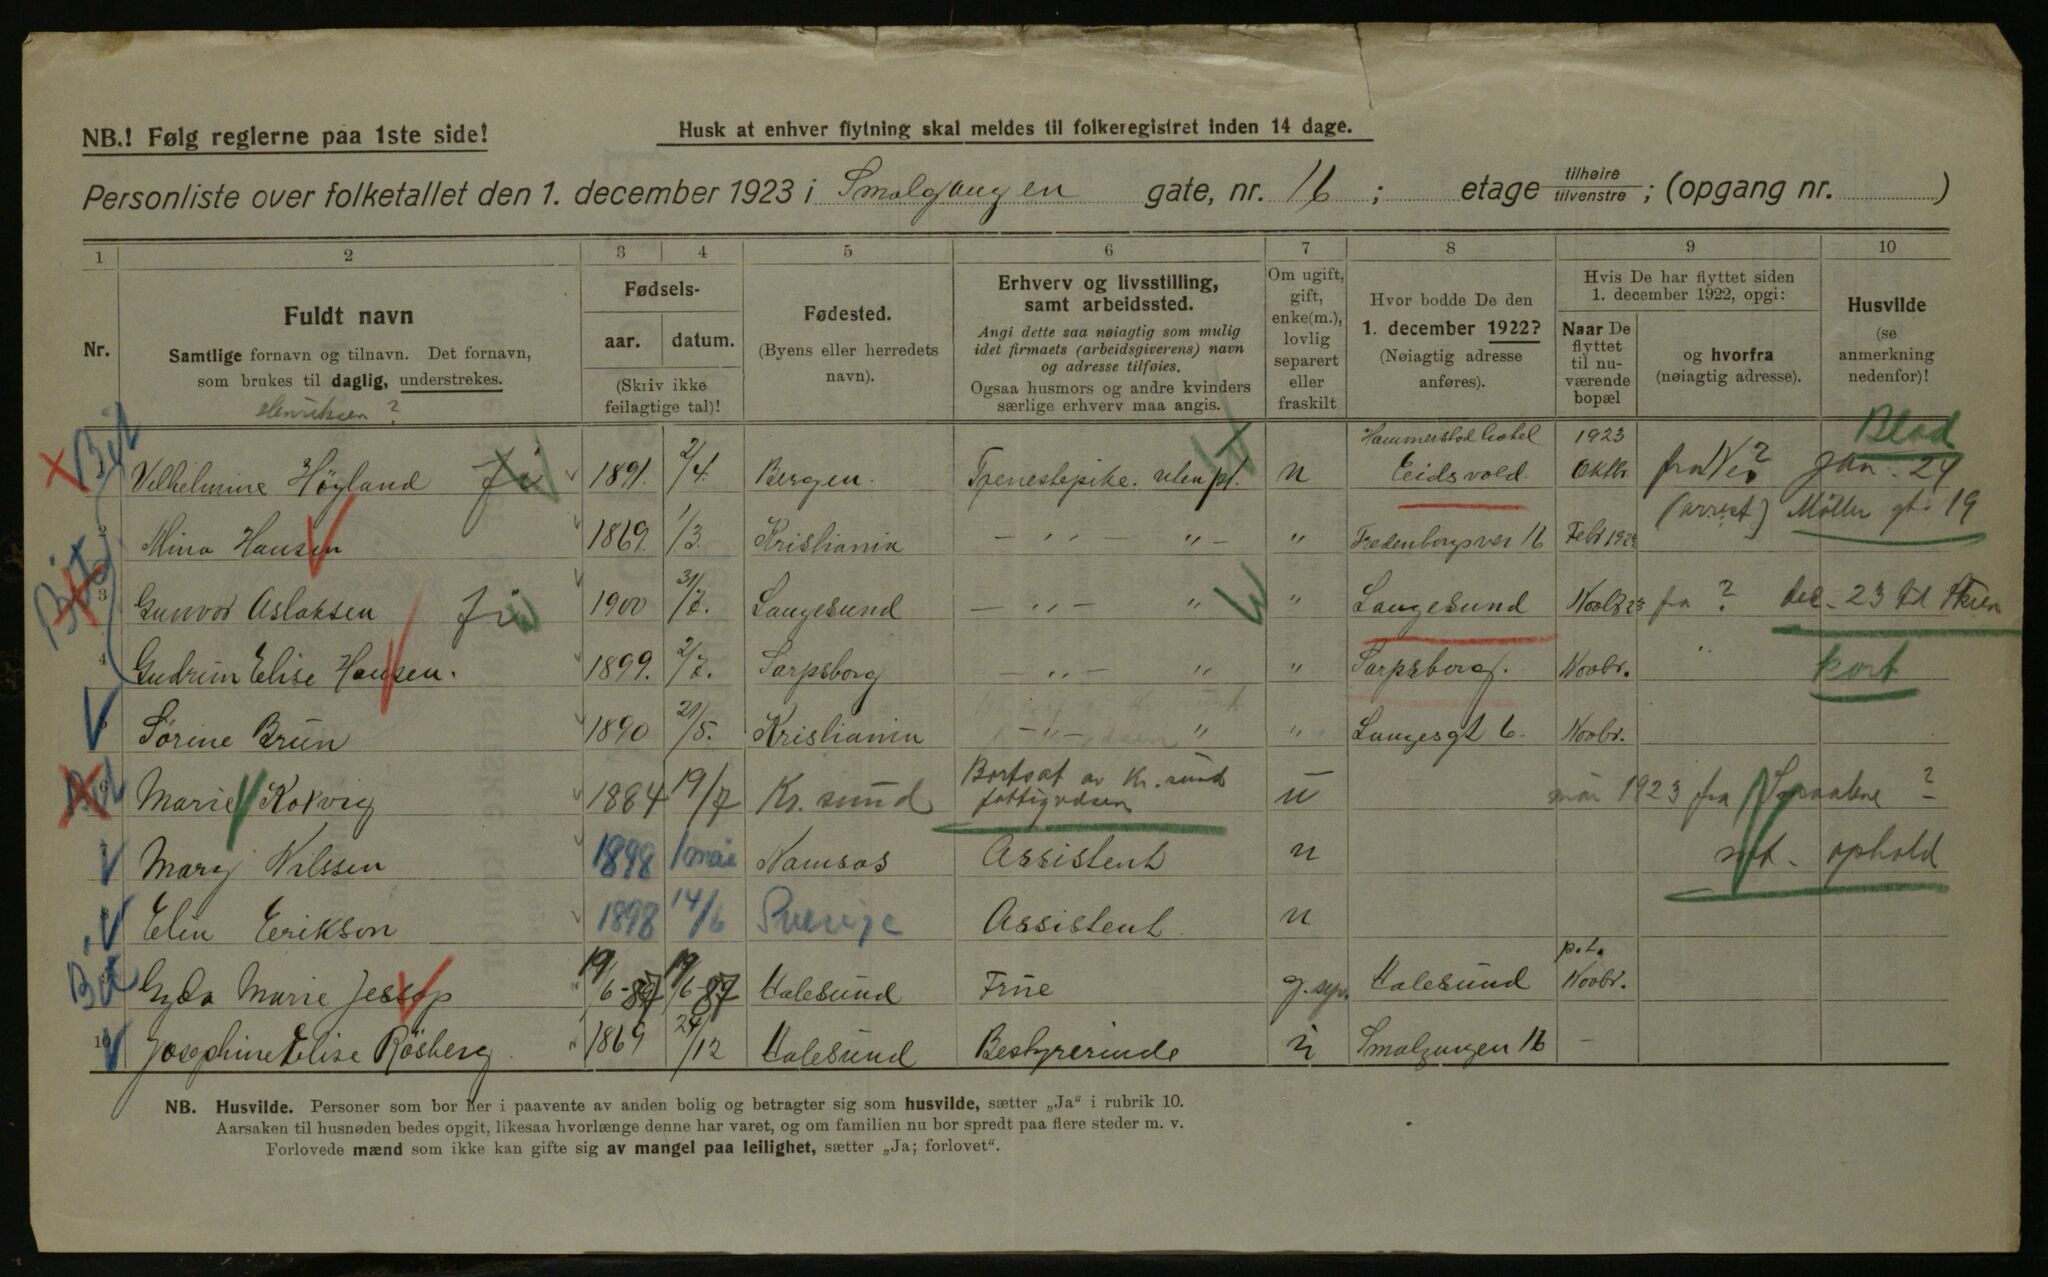 NB.! Følg reglerne paa 1ste side!
Husk at enhver flytning skal meldes til folkeregistret inden 14 dage.
Personliste over folketallet den 1. december 1923 i Smalgangen gate, nr. 16; etage tilhøire tilvenstre; (opgang nr. )
1 2 3 4 5 6 7 8 9 10
Nr.
Fuldt navn
Samtlige fornavn og tilnavn. Det fornavn,
som brukes til daglig, understrekes.
Henriksen?
Fødsels-
aar. datum.
(Skriv ikke
feilagtige tal)!
Fødested.
(Byens eller herredets
navn).
Erhverv og livsstilling,
samt arbeidssted.
Angi dette saa nøiagtig som mulig
idet firmaets (arbeidsgiverens) navn
og adresse tilføies.
Ogsaa husmors og andre kvinders
særlige erhverv maa angis.
Om ugift,
gift,
enke(m.),
lovlig
separert
eller
fraskilt
Hvor bodde De den
1. december 1922?
(Nøiagtig adresse
anføres).
Hvis De har flyttet siden
1. december 1922, opgi:
Naar De
flyttet
til nu-
værende
bopæl
og hvorfra
(nøiagtig adresse).
Husvilde
(se
anmerkning
nedenfor)!
Blad
Vilhelmine Høyland 1891. 2/4. Bergen. Tjenestepike. uten pl. u Hammerstad hotel Eidsvold. 1923 Oktbr. fra ? jan. 24
(arrest) Møller gt. 19
2 Mina Hansen 1869. 1/3. Kristiania — " — " — " Fredensborgveien 16 Febr 1923
3 Gunvor Aslaksen 1900 31/7. Langesund — " — " " Langesund Novbr 23 fra ? des. 23 til Skien
4 Gudrun Elise Hansen. 1899. 2/7. Sarpsborg — " — " " Sarpsborg. Novbr. " kort
5 Sørine Brun 1890 21/5. Kristiania — " — " " Langesgt 6. Novbr.
6 Marie Kolvig 1884 19/7 Kr. sund Bortsat av Kr. sund fattigvæsen u 1923 fra Smaalene ?
7 Mary Nilssen 1898 Namsos Assistent u ophold
8 Elin Erikson 1898 14/6 Sverige Assistent u
9 Gyda Marie Jessop 19/6-87 19/6-87 Aalesund Frue g. sep. Aalesund Novbr.
10 Josephine Elise Røsberg 1869 24/12 Aalesund Bestyrerinde u Smalgangen 16 —
NB. Husvilde. Personer som bor her i paavente av anden bolig og betragter sig som husvilde, sætter „Ja“ i rubrik 10.
Aarsaken til husnøden bedes opgit, likesaa hvorlænge denne har varet, og om familien nu bor spredt paa flere steder m. v.
Forlovede mænd som ikke kan gifte sig av mangel paa leilighet, sætter „Ja; forlovet“.